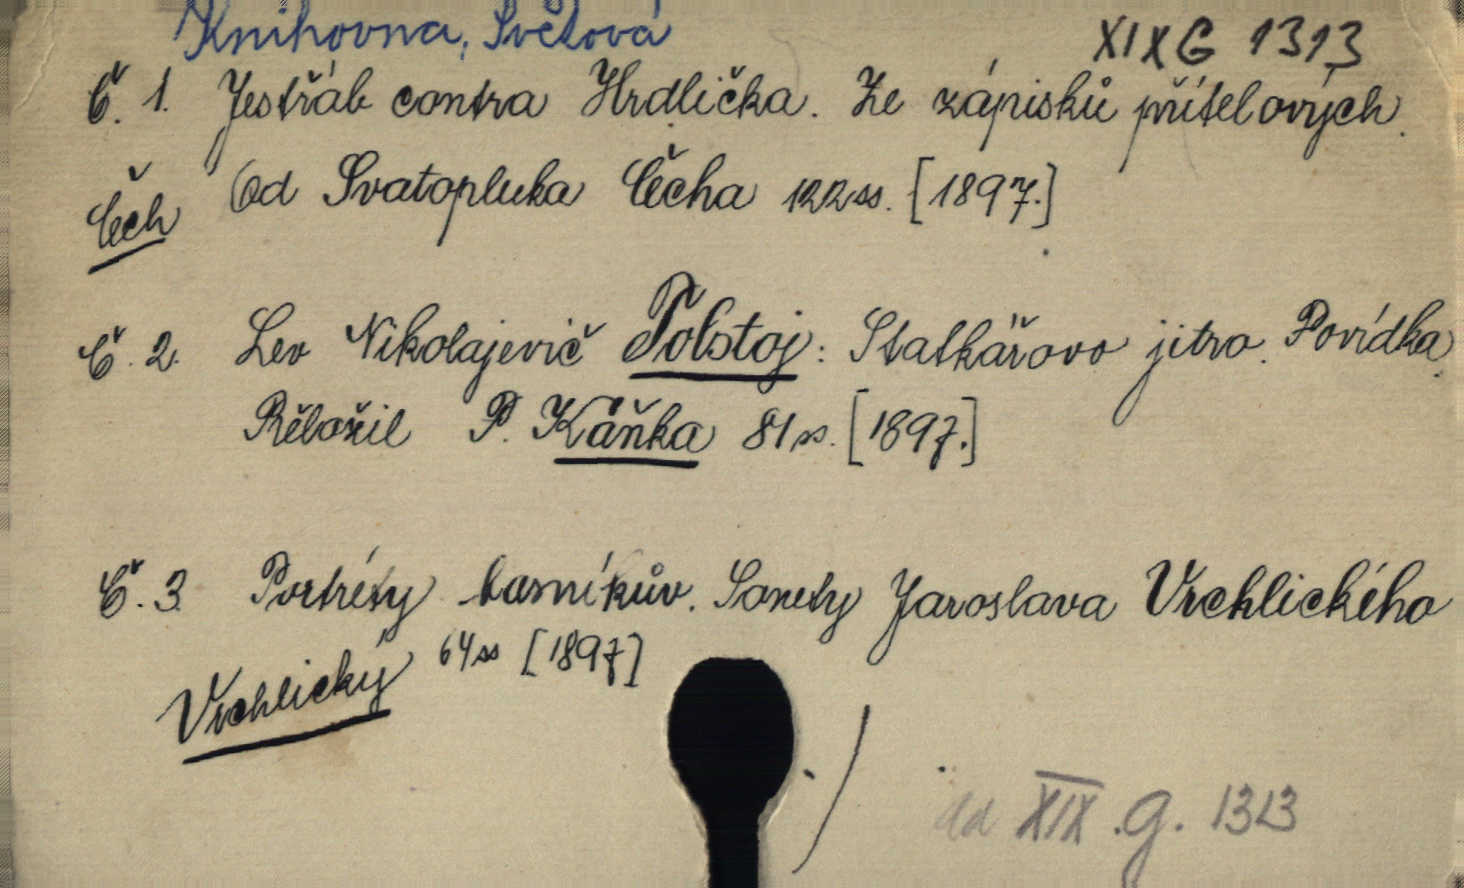 Knihovna, Světová
XIX G 1313
Č. 1. Jestřáb contra Hrdlička. Ze zápisků přítelových.
Čech
Od Svatopluka Čecha 122 ss. [1897.]
Č. 2. Lev Nikolajevič Tolstoj: Statkářovo jitro. Povídka.
Přeložil P. Káňka 81 ss. [1897.]
Č. 3 Portréty básníkův. Sonety Jaroslava Vrchlického
Vrchlický 64 ss [1897]
ad XIX . g. 1313